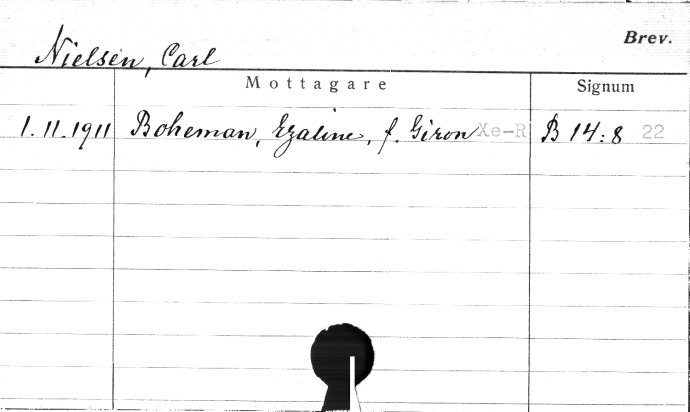 Brev.
Nielsen, Carl
Mottagare Signum
1.11.1911 Boheman, Ezaline, f. Giron Xe-R B 14:8 22